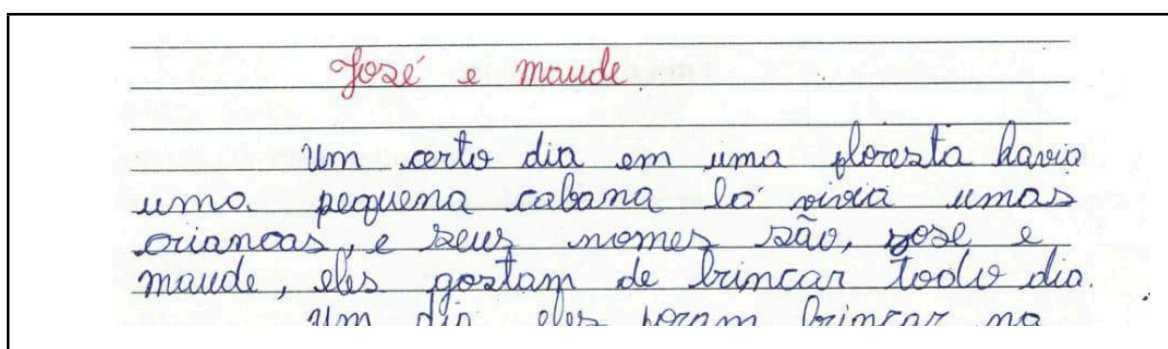 José e maude
Um certo dia em uma floresta havia
uma pequena cabana lá vivia umas
criancas, e seus nomes são, jose e
maude, eles gostam de brincar todo dia.
Um dia eles foram brincar na